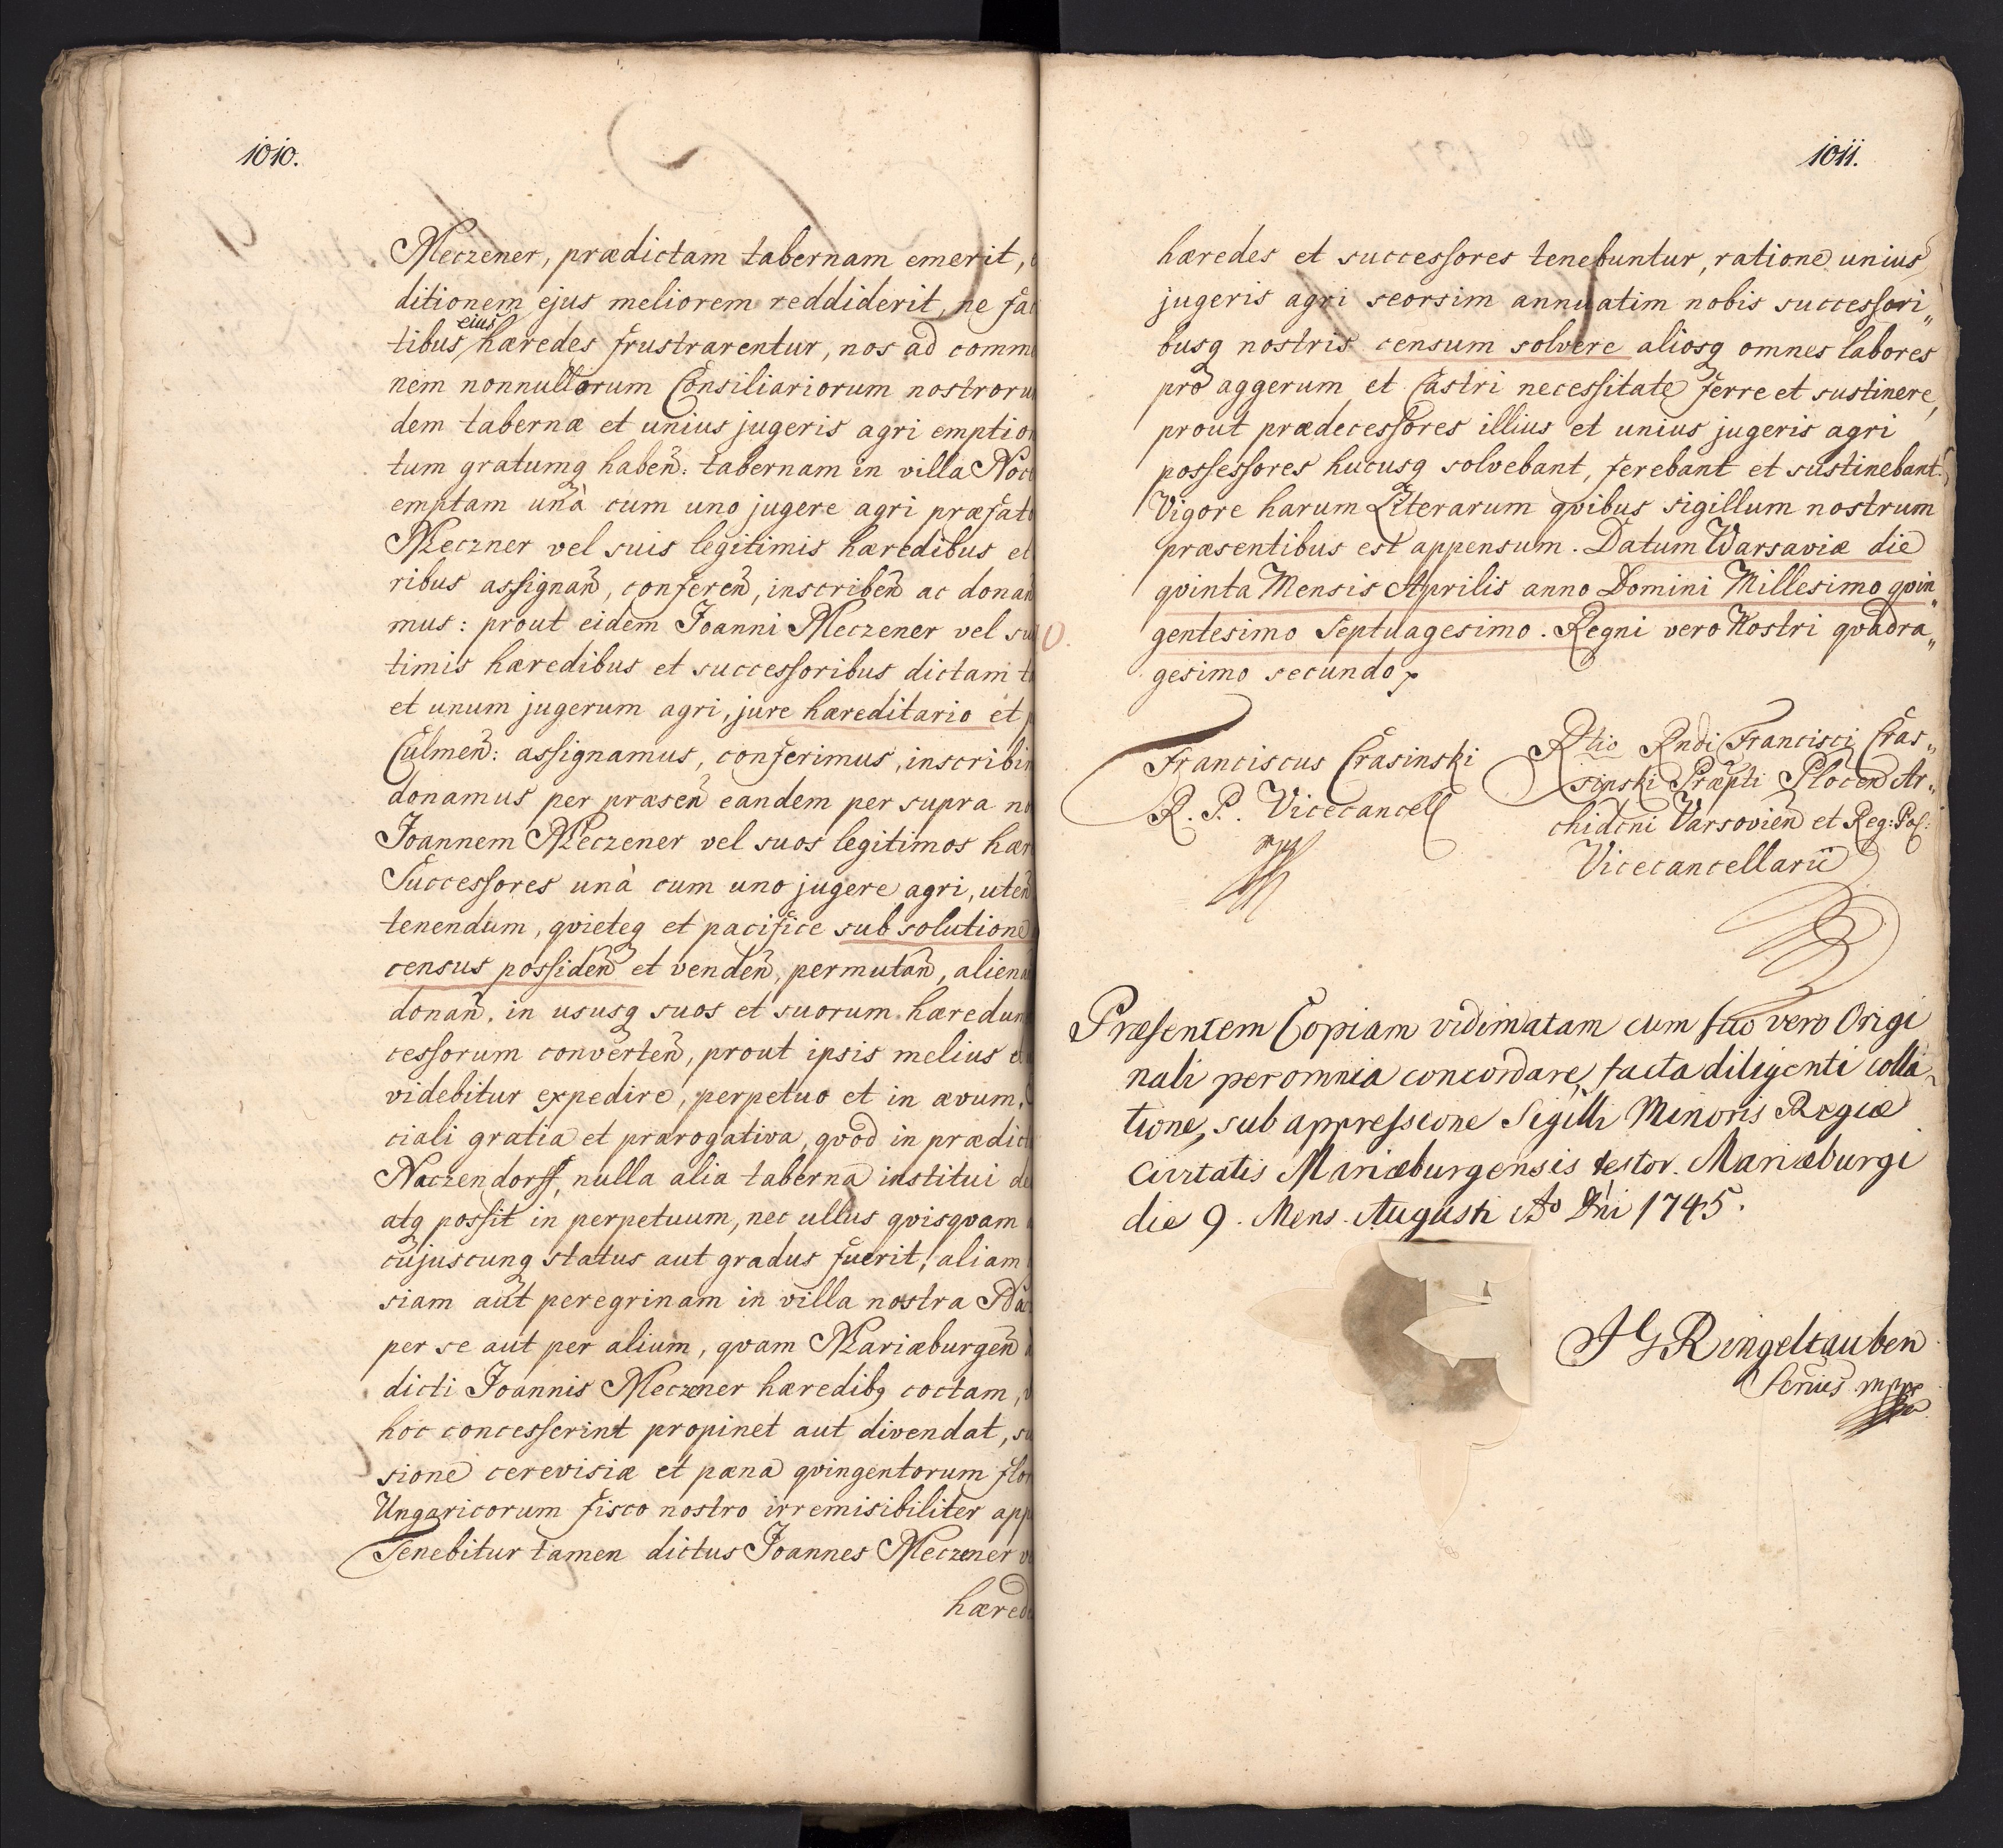 1010.
Meczener, prædictam tabernam emerit,
ditionem ejus meliorem reddiderit, ne
eius
tibus hæredes frustrarentur, nos ad
nem nonnullorum Consiliariorum
dem tabernæ et unius jugeris agri
tum gratumq habeñ: tabernam in villa
emptam unà cum uno jugere agri
Meczner vel suis legitimis hæredibus et
ribus assignañ, confereñ, inscribeñ ac
mus: prout eidem Joanni Meczener vel
timis hæredibus et successoribus dictam
et unum jugerum agri, jure hæreditario et
Culmeñ: assignamus, conferimus,
donamus per præseñ eandem per supra
Joannem Meczener vel suos legitimos
Successores unà cum uno jugere agri, uteñ
tenendum, qvieteq et pacifice sub solutione
census possideñ et vendeñ, permutañ,
donañ, in ususq suos et suorum
cessorum converteñ, prout ipsis melius
videbitur expedire, perpetuo et in ævum,
ciali gratia et prærogativa, qvod in
Naczendorff, nulla alia taberna institui
atq possit in perpetuum, nec ullus qvisqvam
cujuscunq status aut gradus fuerit, aliam
siam aut peregrinam in villa nostra
per se aut per alium, qvam Mariæburgeñ
dicti Joannis Meczener hæredibq coctam,
hoc concesserint propinet aut divendat,
sione cerevisiæ et pæna qvingentorum
Ungaricorum fisco nostro irremisibiliter
Tenebitur tamen dictus Joannes Meczener
1011.
hæredes et successores tenebuntur, ratione unius
jugeris agri seorsim annuatim nobis successori„
busq nostris censum solvere aliosq omnes labores
pro aggerum et Castri necessitate ferre et sustinere,
prout prædecessores illius et unius jugeris agri
possessores hucusq solvebant, ferebant et sustinebant.
Vigore harum Literarum qvibus sigillum nostrum
præsentibus est appensum. Datum Warsaviæ die
qvinta Mensis Aprilis anno Domini Millesimo qvin„
gentesimo Septuagesimo. Regni vero Nostri qvadra„
gesimo secundo
Franciscus Crasinski
R. P. Vicecancell
mpp
Rtio Rndi Francisci Cras„
sinski Præpti Plocen Ar„
chidcni Varsovieñ et Reg: Pol:
Vicecancellarii
Præsentem Copiam vidimatam cum suo vero Origi
nali per omnia concordare, facta diligenti colla„
tione, sub appressione Sigilli Minoris Regiæ
Civitatis Mariæburgensis testor. Mariæburgi
die 9. Mens. Augusti Ao Dni 1745.
J G Ringeltauben
Scrius mpp